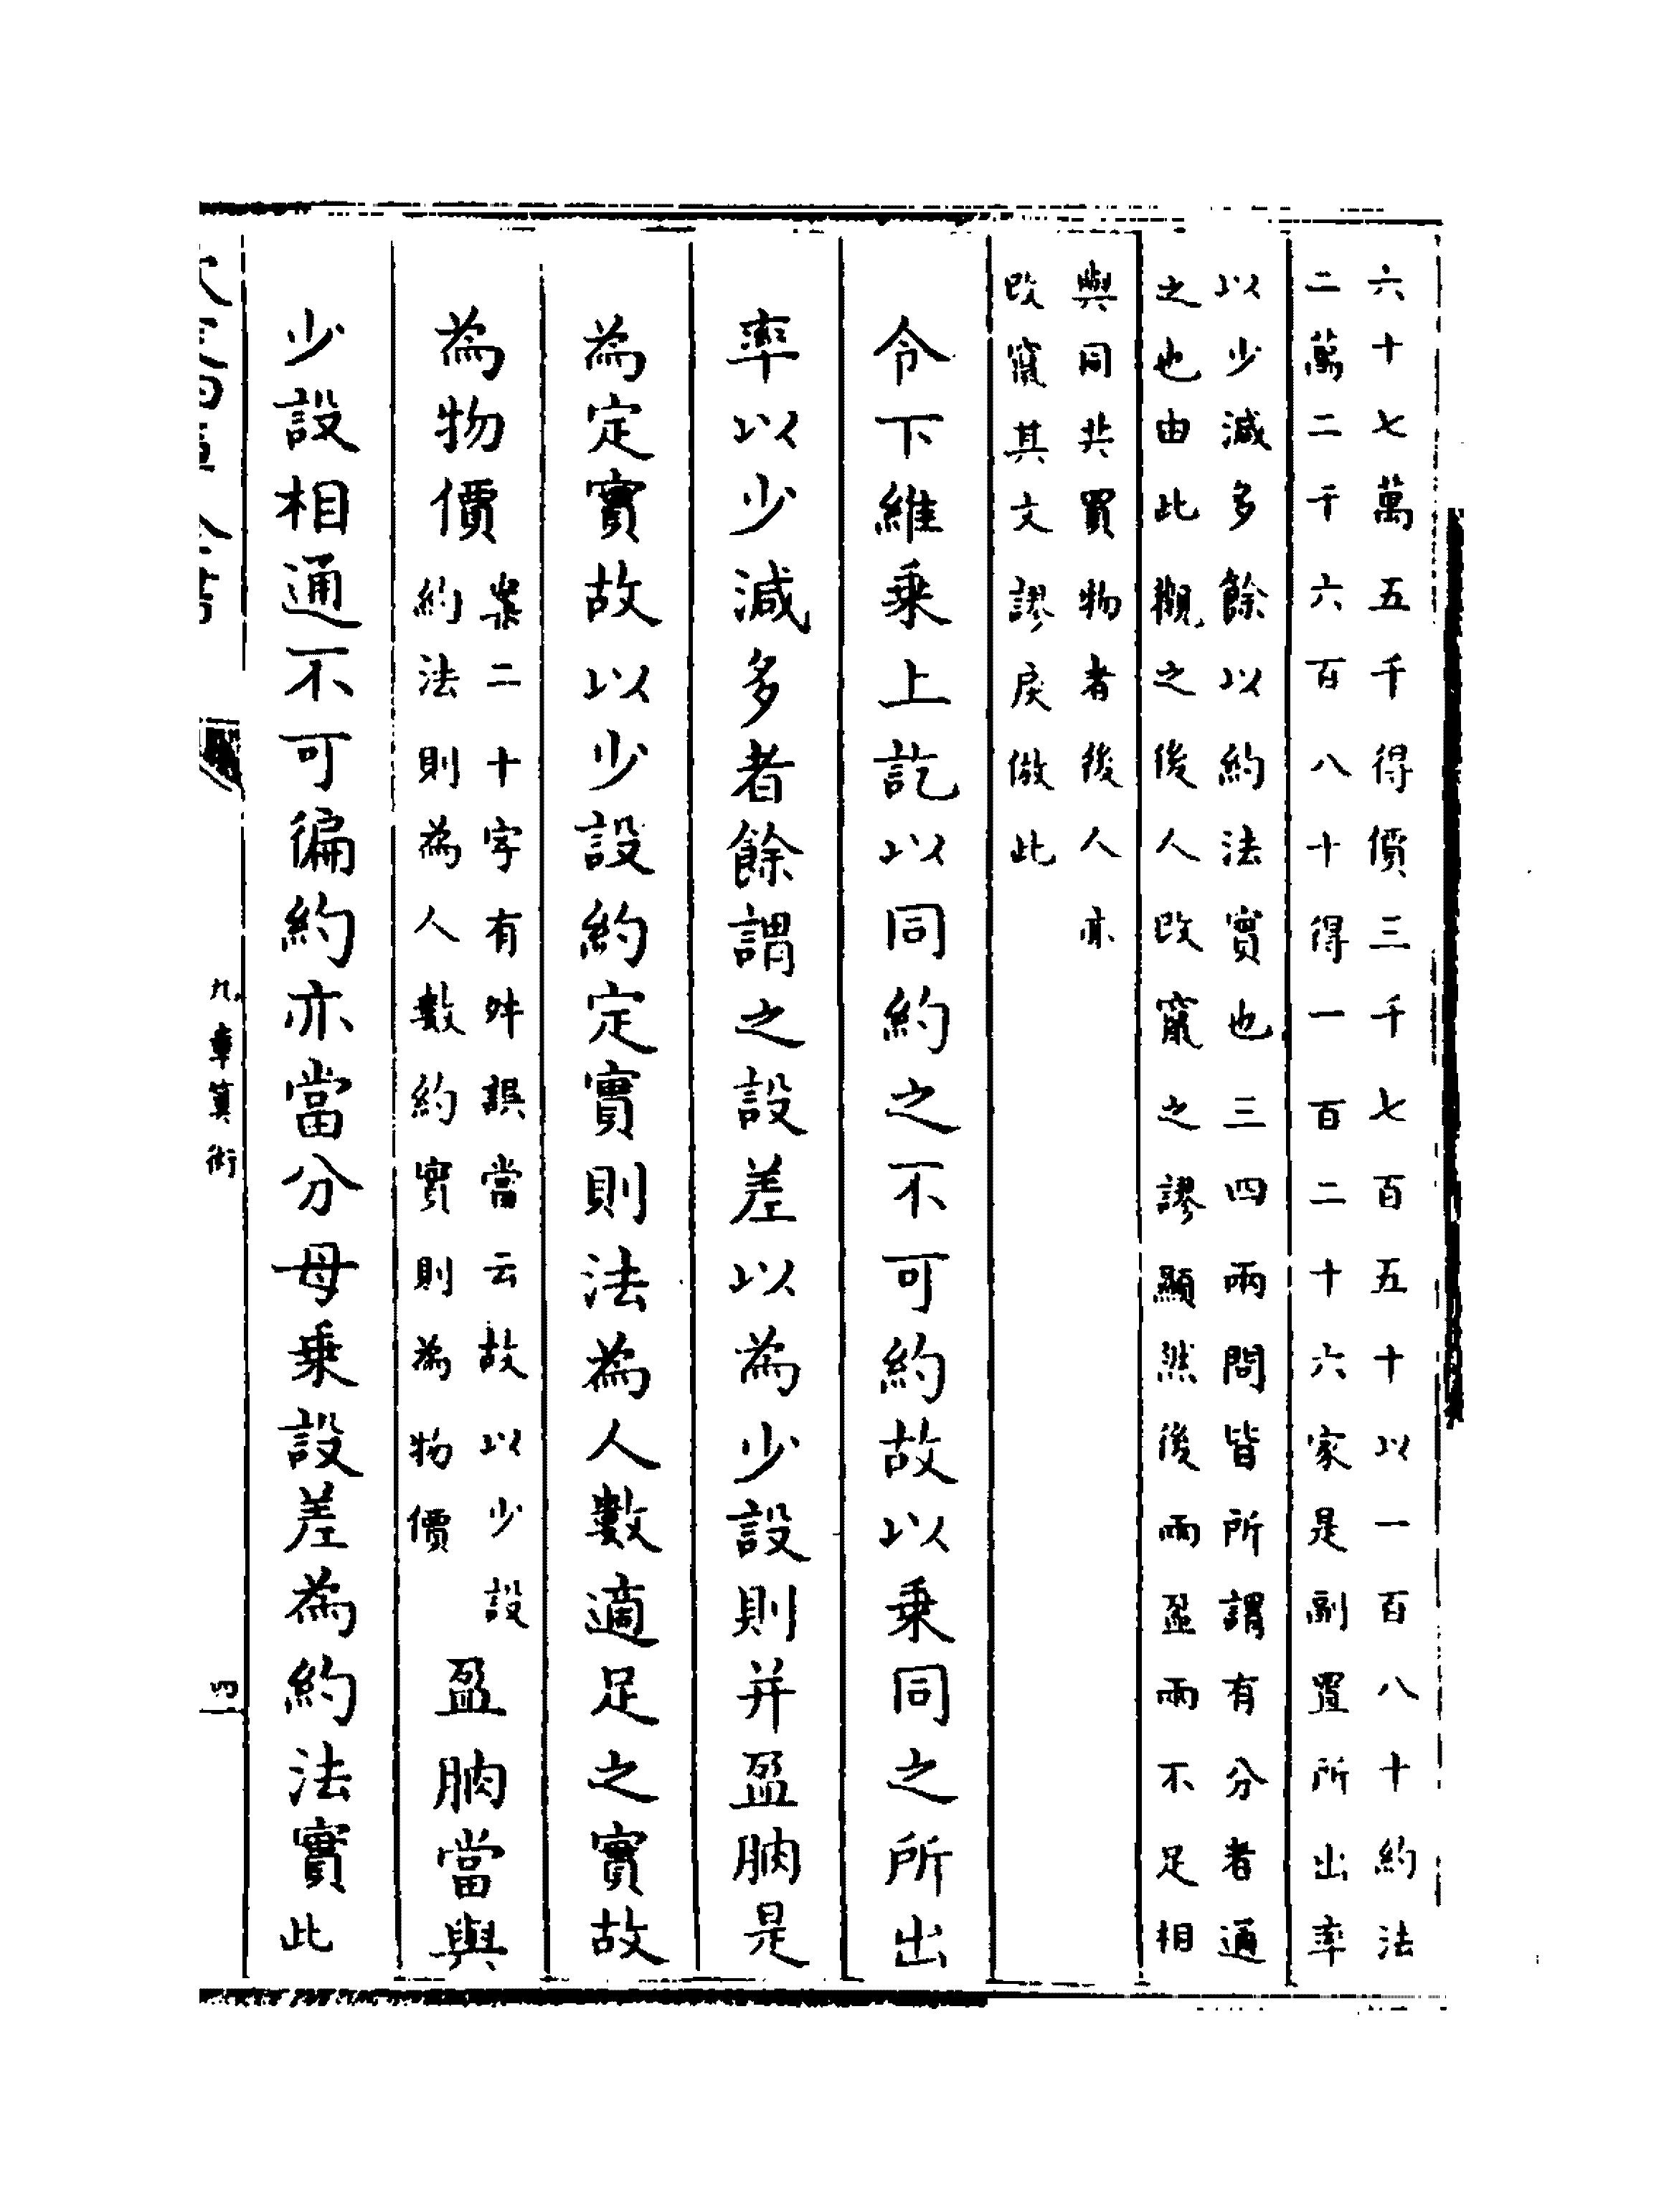 六十七萬五千得價三千七百五十以一百八十約法
二萬二千六百八十得一百二十六家是副置所出率
以少減多餘以約法實也三四兩問皆所謂有分者通
之也由此觀之後人改竄之謬顯然後兩盈兩不足相
與同共買物者後人亦
改竄其文謬戾倣此
令下維乗上訖以同約之不可約故以乗同之所出
率以少減多者餘謂之設差以為少設則并盈朒是
為定實故以少設約定實則法為人數適足之實故
為物價
案二十字有舛誤當云故以少設
約法則為人數約實則為物價
盈朒當與
少設相通不可徧約亦當分母乗設差為約法實此
九章算術
四